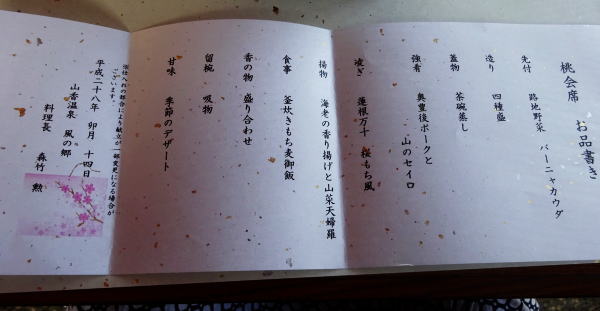 桃会席　お品書き
先付　路地野菜　バーニャカウダ
造り　四種盛
蓋物　茶碗蒸し
強肴　奥豊後ポークと
山のセイロ
凌ぎ　蓮根万十　桜もち風
揚物　海老の香り揚げと山菜天婦羅
食事　釜炊きもち麦御飯
香の物　盛り合わせ
留椀　吸物
甘味　季節のデザート
※仕入れの都合により献立が一部変更になる場合が
ございます。
平成二十八年　卯月　十四日
山香温泉　風の郷
料理長　森竹　勲